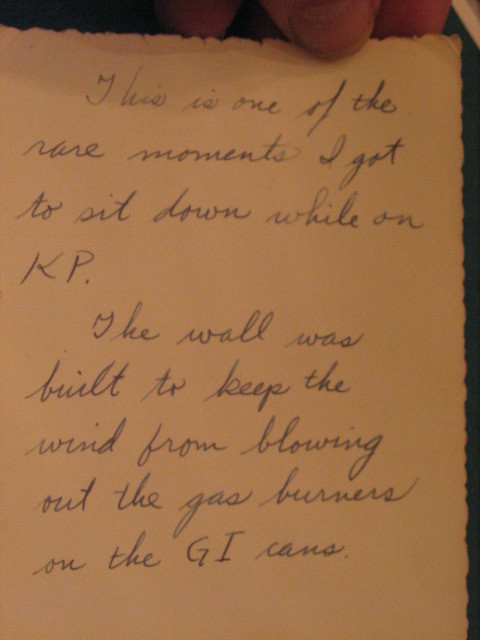 This is one of the
rare moments I got
to sit down while on
KP.
The wall was
built to keep the
wind from blowing
out the gas burners
on the GI cans.